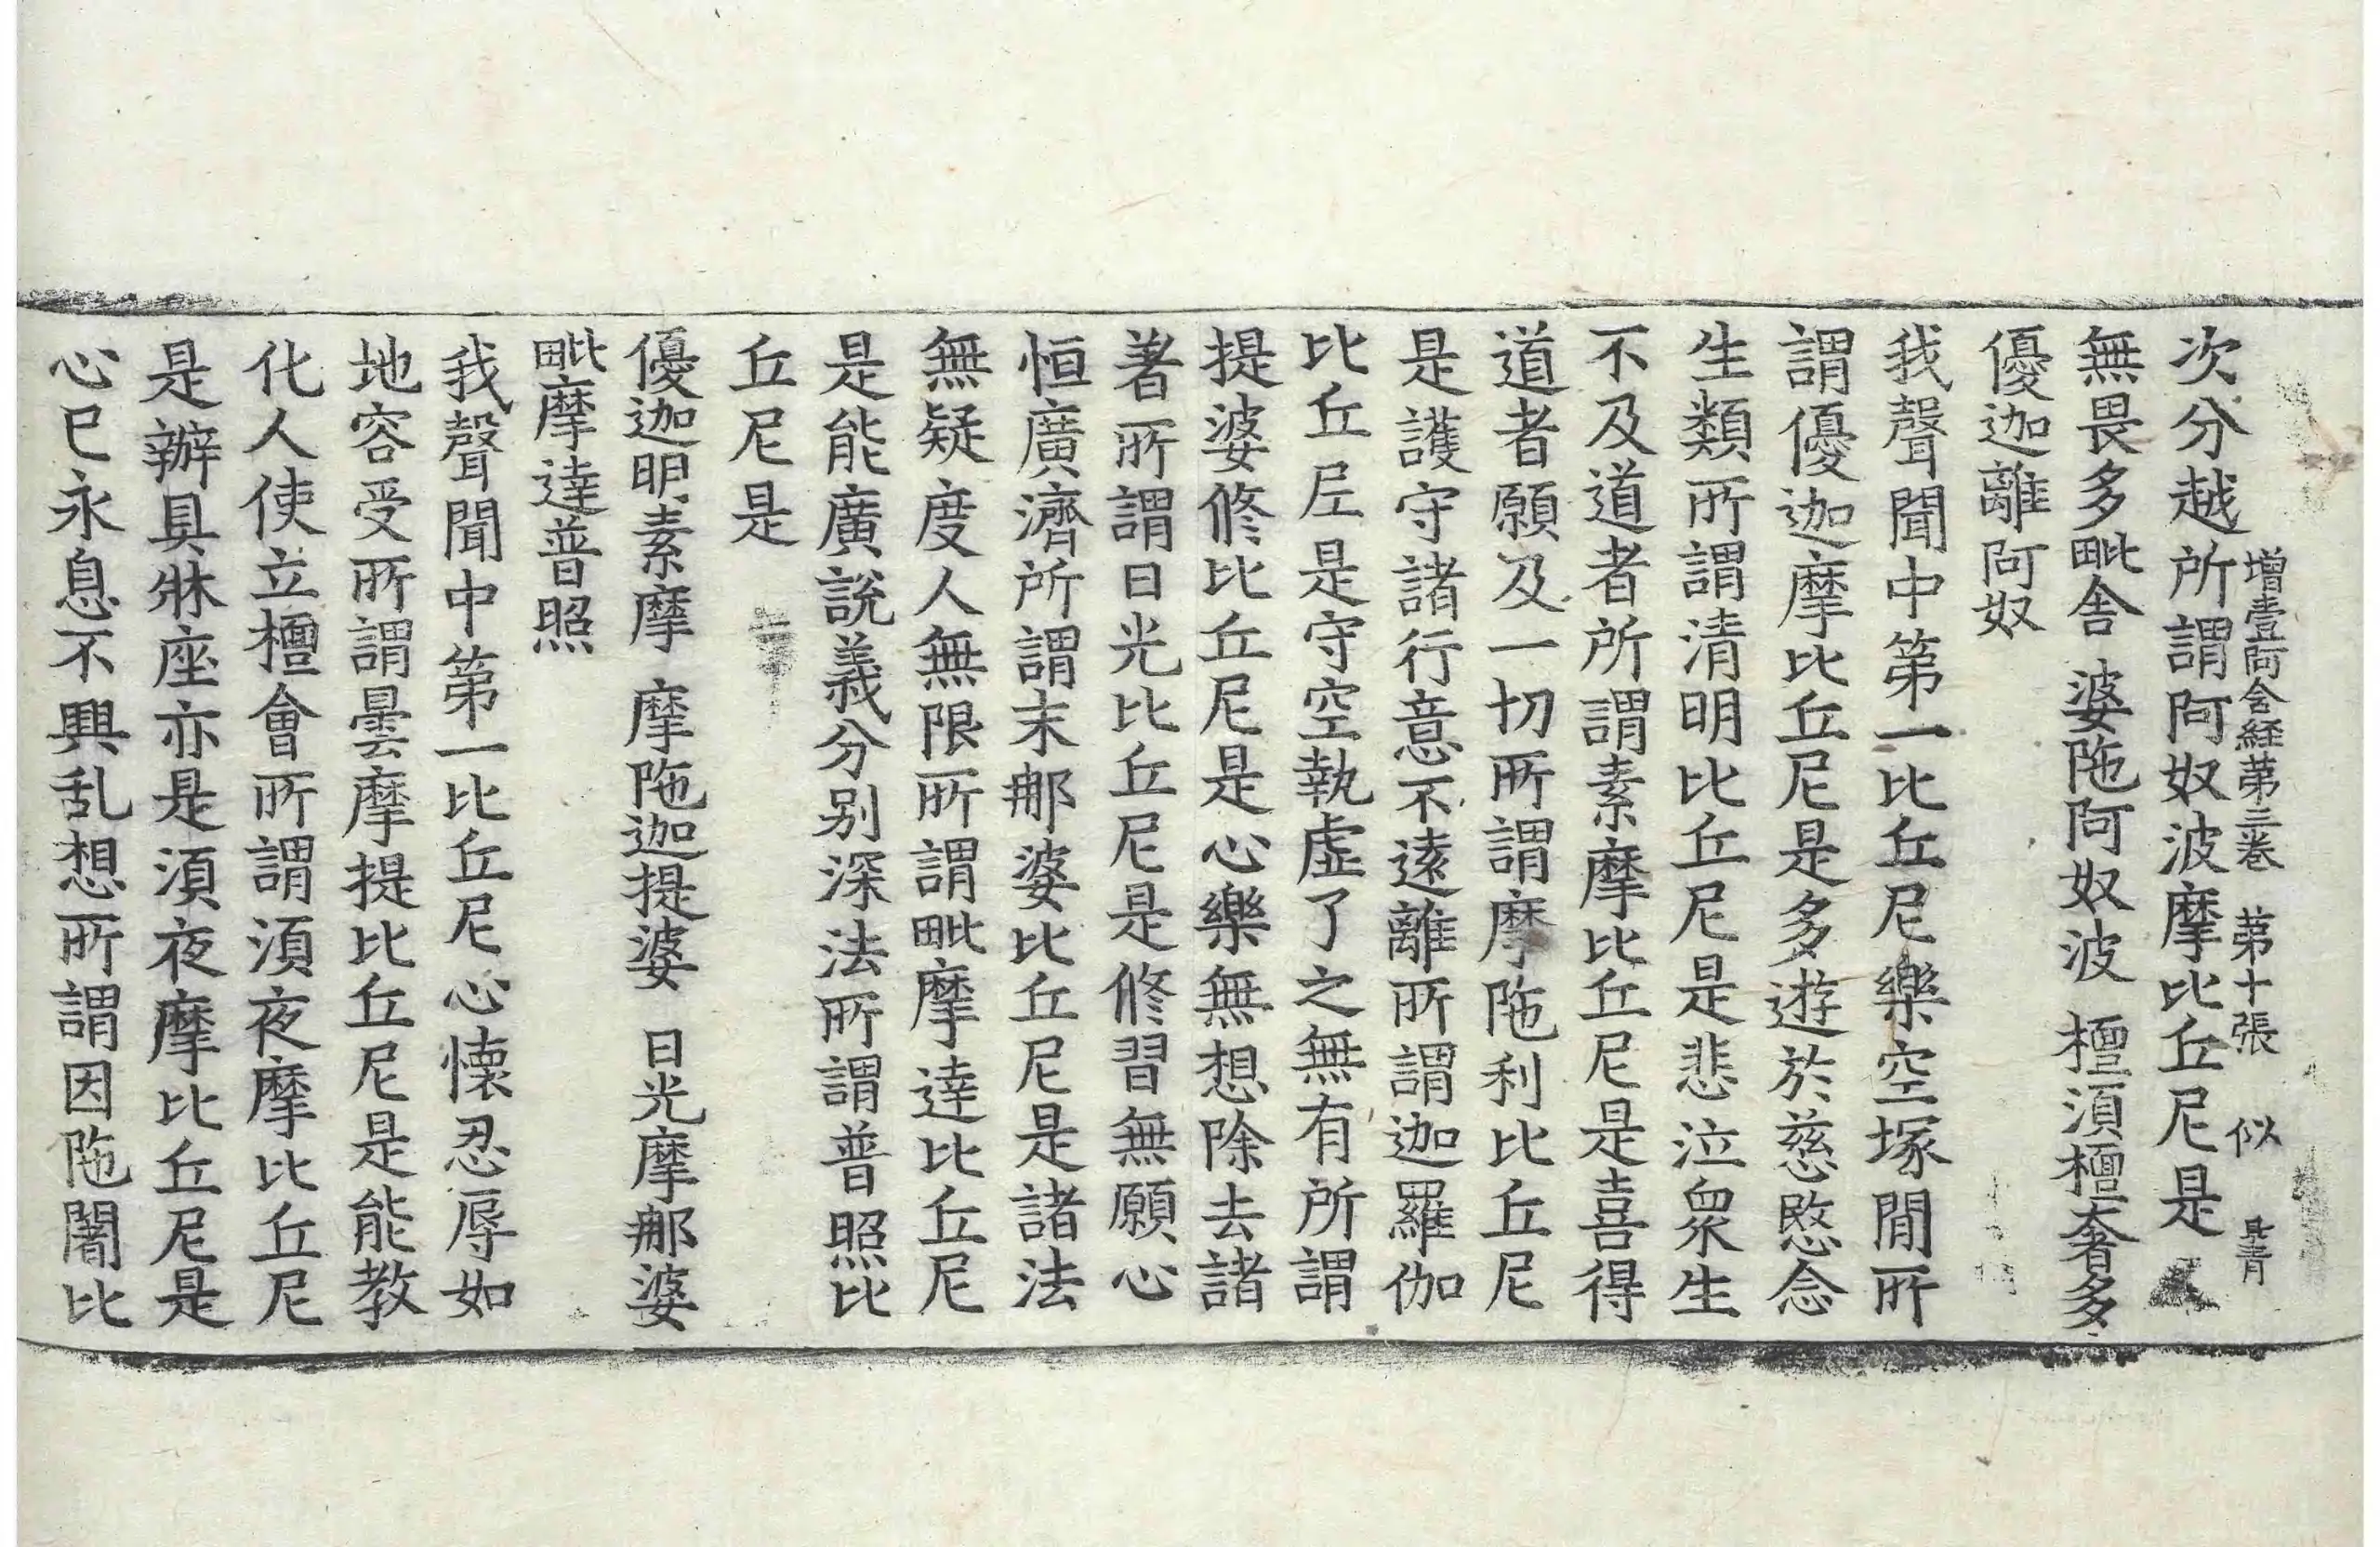 增壹阿含経第三巻　第十張　似
次分越所謂阿奴波摩比丘尼是
無畏多毗舎　婆陁阿奴波　檀湏檀奢多
優迦離阿奴
我聲聞中第一比丘尼樂空塚閒所
謂優迦摩比丘尼是多遊於慈愍念
生類所謂清明比丘尼是悲泣衆生
不及道者所謂素摩比丘尼是喜得
道者願及一切所謂摩陁利比丘尼
是護守諸行意不遠離所謂迦羅伽
比丘尼是守空執虛了之無有所謂
提婆修比丘尼是心樂無想除去諸
著所謂日光比丘尼是修習無願心
恒廣濟所謂末那婆比丘尼是諸法
無疑度人無限所謂毗摩達比丘尼
是能廣說義分别深法所謂普照比
丘尼是
優迦明素摩　摩陁迦提婆　日光摩那婆
毗摩達普照
我聲聞中第一比丘尼心懷忍辱如
地容受所謂曇摩提比丘尼是能教
化人使立檀會所謂湏夜摩比丘尼
是辦具牀座亦是湏夜摩比丘尼是
心已永息不興乱想所謂因陁闍比